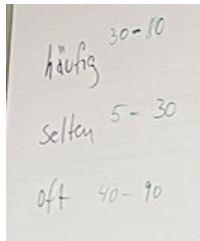 häufig 30-80
selten 5 - 30
oft 40 - 90